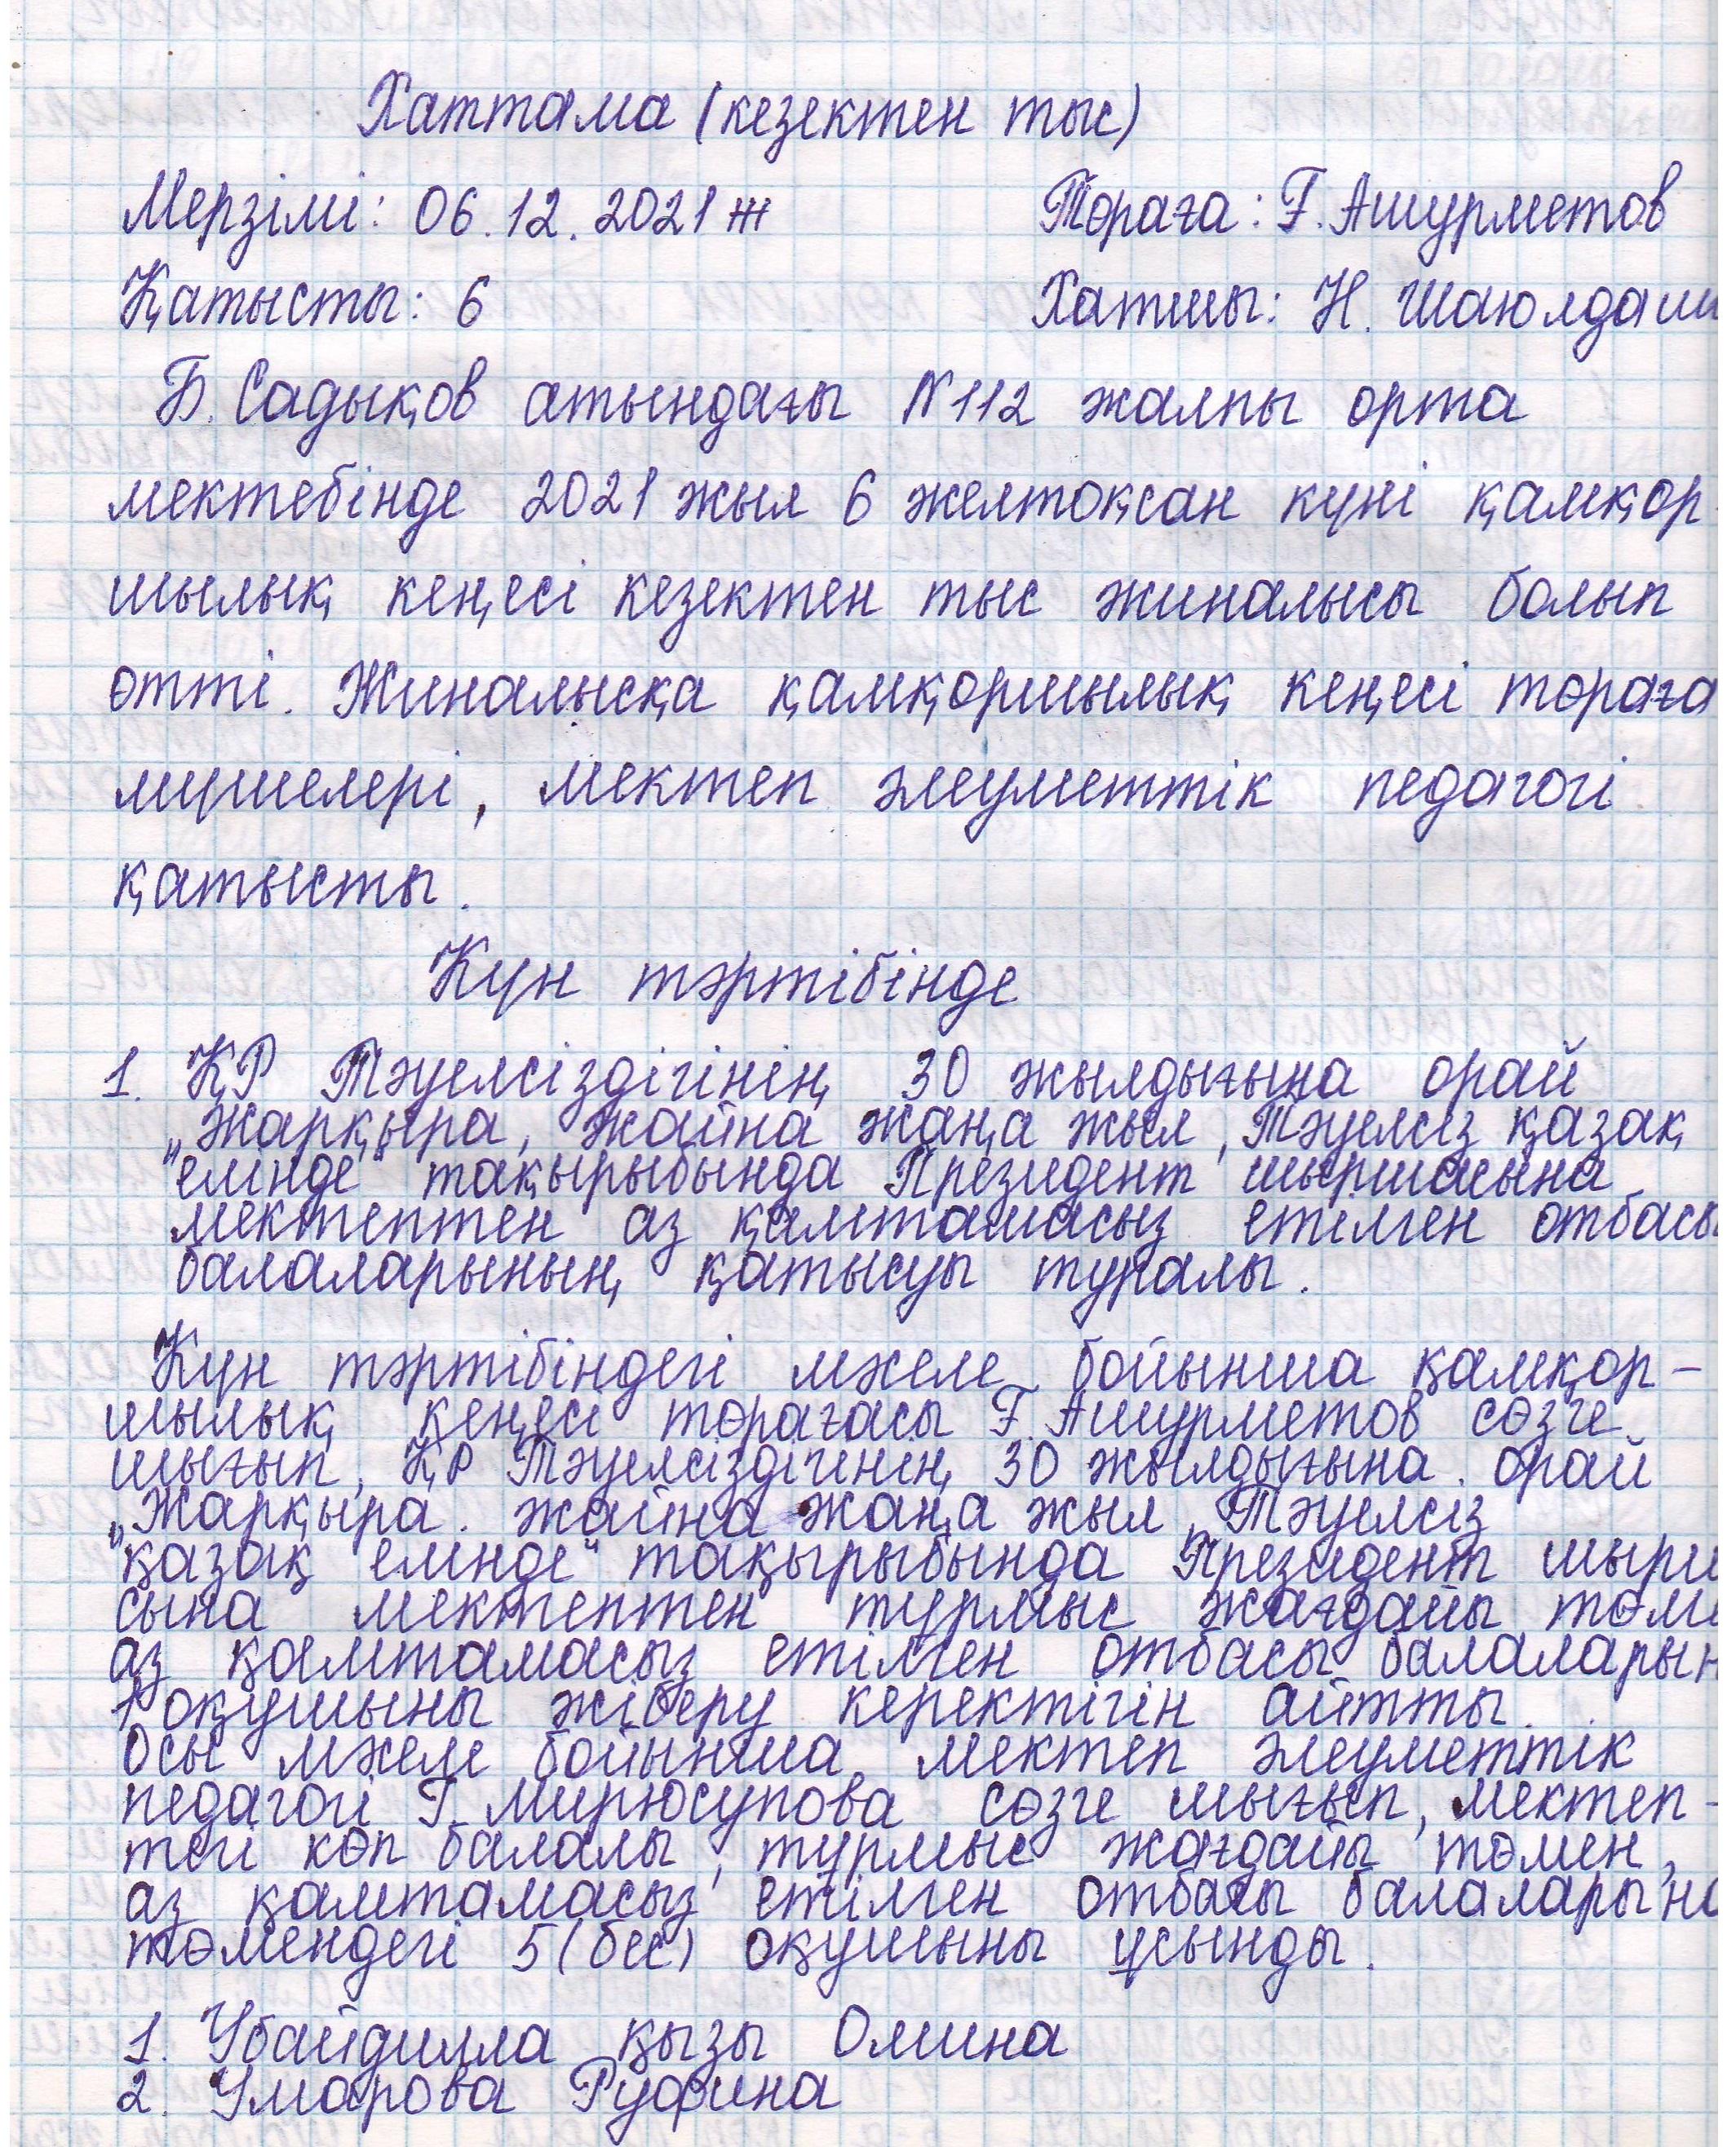 Хаттама (кезектен тыс)
Мерзімі: 06.12.2021 ж Төраға: Ғ. Ашурметов
Қатысты: 6 Хатшы: Н. Шаюлдаш
Б. Садықов атындағы №112 жалпы орта
мектебінде 2021 жыл 6 желтоқсан күні қамқор-
шылық кеңесі кезектен тыс жиналысы болып
өтті. Жиналысқа қамқоршылық кеңесі төраға
мүшелері, мектеп әлеуметтік педагогі
қатысты.
Күн тәртібінде
1. ҚР Тәуелсіздігінің 30 жылдығына орай
„Жарқыра, жайна жаңа жыл, Тәуелсіз қазақ
елінде" тақырыбында Президент шыршасына
мектептен аз қамтамасыз етілген отбасы
балаларының қатысуы туралы.
Күн тәртібіндегі мәселе бойынша қамқор-
шылық кеңесі төрағасы Ғ. Ашурметов сөзге
шығып, ҚР Тәуелсіздігінің 30 жылдығына орай
„Жарқыра. жайна жаңа жыл, Тәуелсіз
қазақ елінде" тақырыбында Президент шырш
сына мектептен тұрмыс жағдайы төме
аз қамтамасыз етілген отбасы балаларын
1 оқушыны жіберу керектігін айтты.
Осы мәселе бойынша мектеп әлеуметтік
педагогі Г. Мирюсупова сөзге шығып, мектеп-
тегі көп балалы, тұрмыс жағдайы төмен,
аз қамтамасыз етілген отбасы балаларына
төмендегі 5 (бес) оқушыны ұсынды.
1. Убайдилла қызы Омина
2. Умарова Руфина